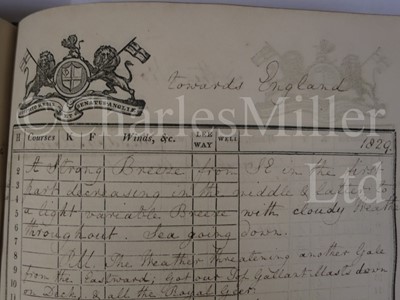 towards England
©CharlesMiller
Ltd
H Courses K F Winds, &c. LEE WAY WELL 1829
1 A Strong Breeze from SE in the first
2
3 part decreasing in the middle & latter to
4
5 a light variable Breeze with cloudy Weather
6 throughout. Sea going down.
7
8 All The Weather threatening another Gale
9 from the Eastward; Got our Top Gallant Masts down
10 on Deck, & all the Royal Gear.